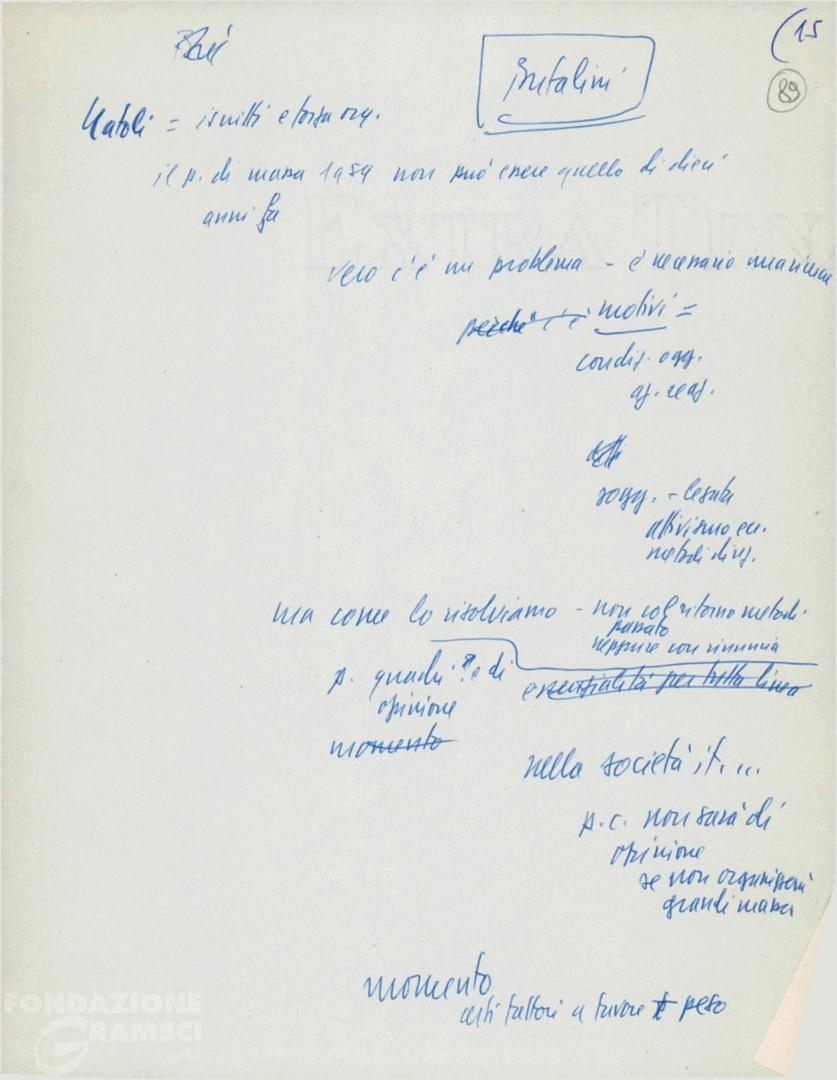 (15
89
Bufalini
Natoli = iscritti e forza org.
il p. di massa 1954 non può essere quello di dieci
anni fa
vero c'è un problema - è necessario
perché c'è motivi =
condiz. ogg.
sogg. -
attivismo ecc.
metodi
ma come lo risolviamo - non col ritorno metodi
passato
neppure con rinuncia
p. quadri? e di
opinione
essenzialità per tutta linea
momento
nella società it....
p.c. non sarà di
opinione
se non organizzerà
grandi masse
momento
certi fattori a favore peso
EXTRA
FONDAZIONE
GRAMSCI